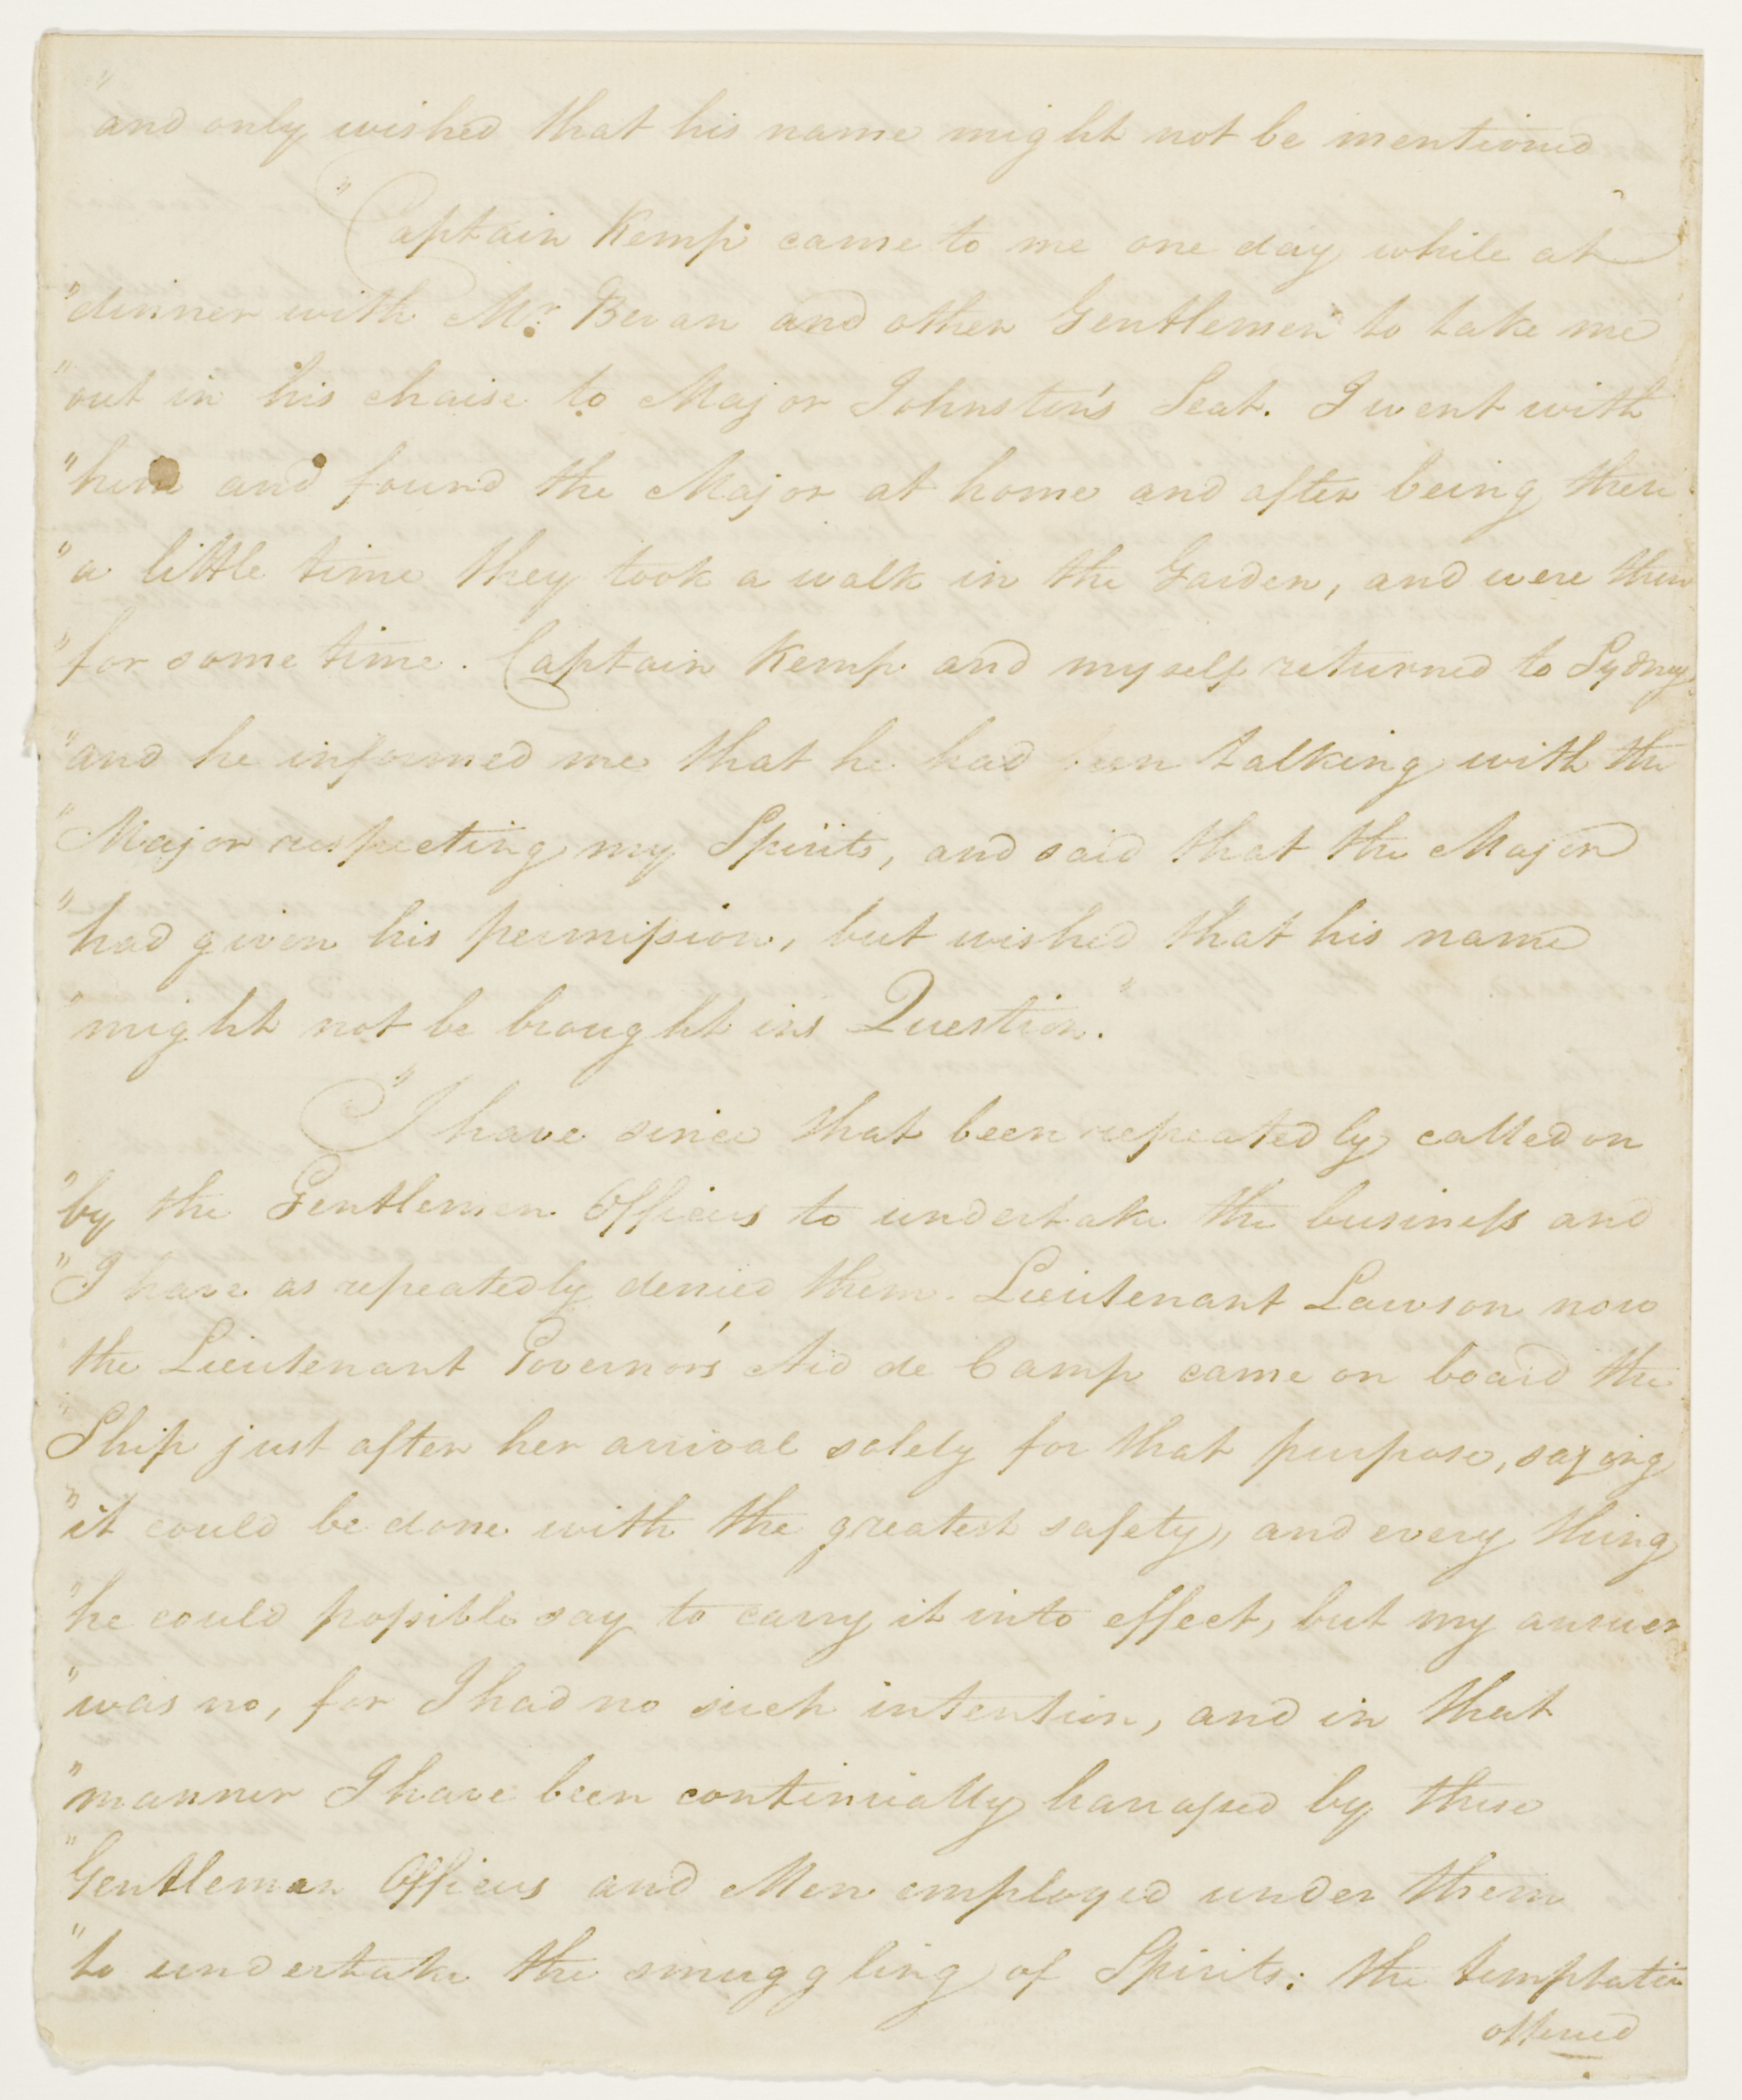 "and only wished that his name might not be mentioned
"Captain Kemp came to me one day while at
"dinner with Mr. Bevan and other Gentlemen to take me
"out in his chaise to Major Johnston's Seat. I went with
"him and found the Major at home and after being there
"a little time they took a walk in the Garden, and were there
"for some time. Captain Kemp and myself returned to Sydney
"and he informed me that he had been talking with the
"Major respecting my Spirits, and said that the Major
"had given his permission, but wished that his name
"might not be brought in Question."
"I have since that been repeatedly called on
"by the Gentlemen Officers to undertake the business and
"I have as repeatedly denied them. Lieutenant Lawson now
"the Lieutenant Governor's Aid de Camp came on board the
"Ship just after her arrival solely for that purpose, saying
"it could be done with the greatest safety, and every thing
"he could possible say to carry it into effect, but my answer
"was no, for I had no such intention, and in that
"manner I have been continually harrassed by these
"Gentleman Officers and Men employed under them
"to undertake the smuggling of Spirits: the temptation
offered